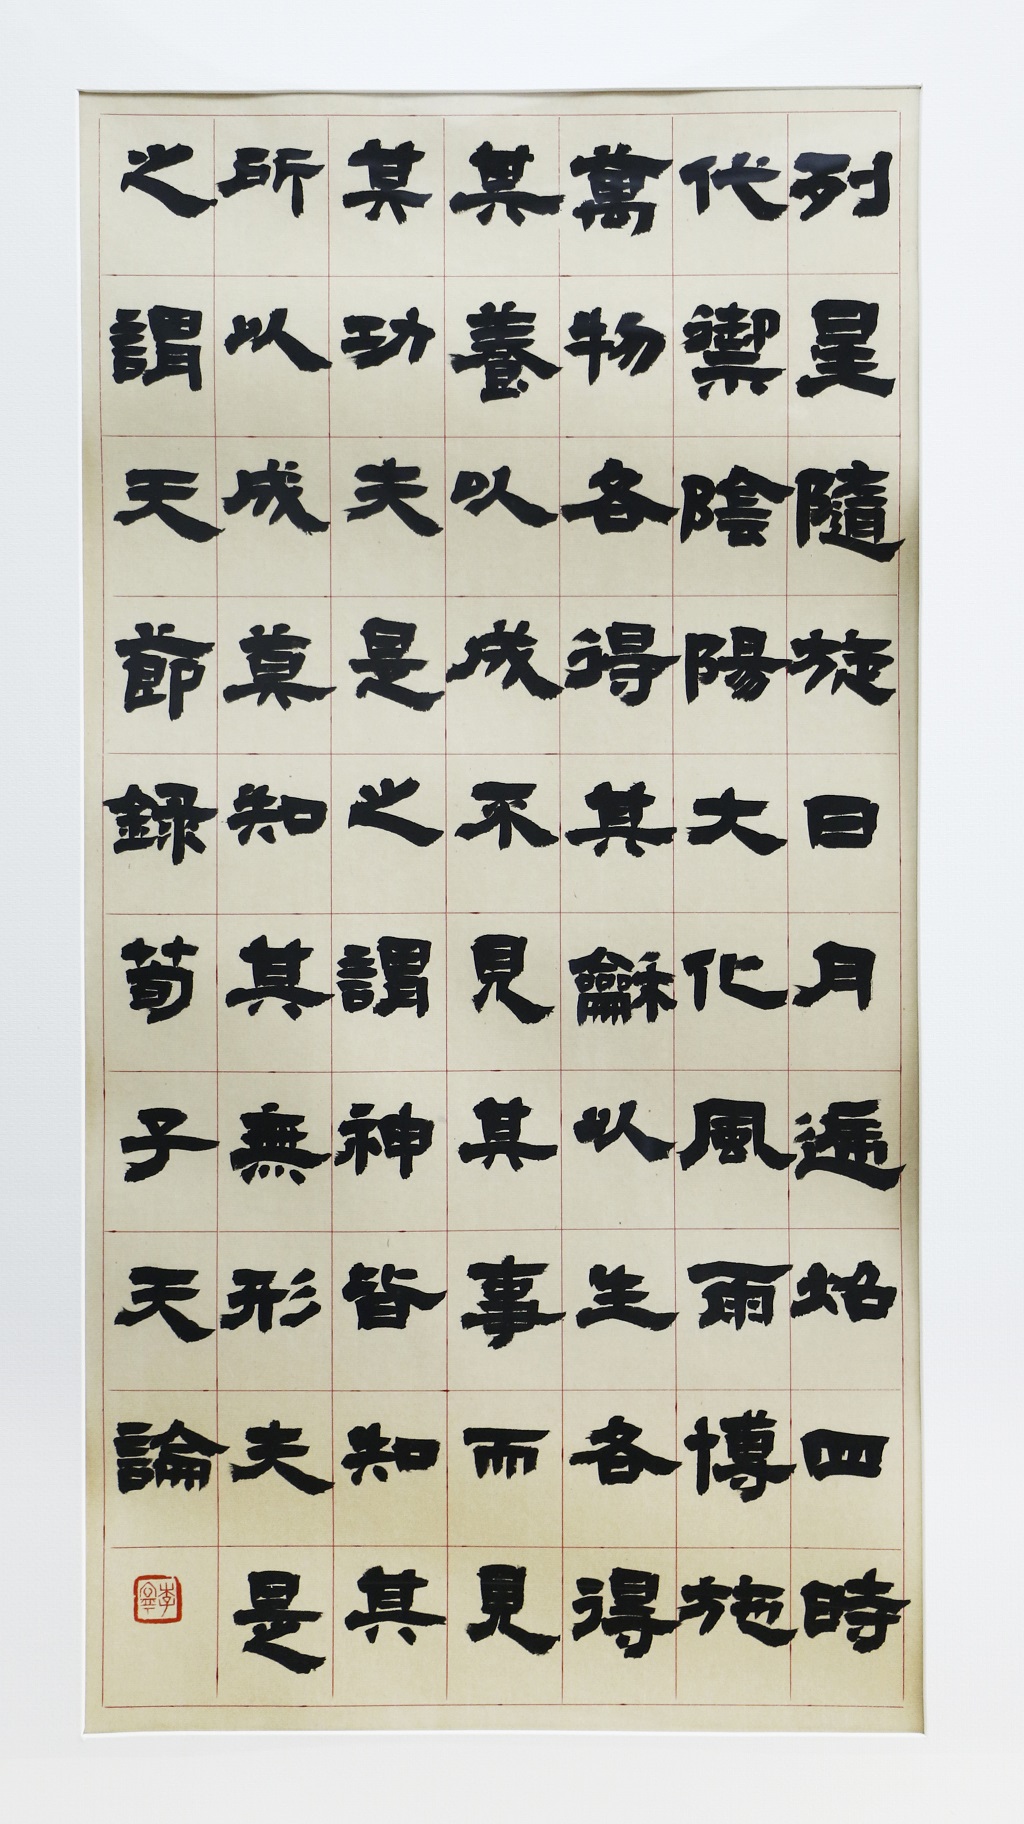 列星隨旋日月遞炤四時
代禦陰陽大化風雨博施
萬物各得其龢以生各得
其養以成不見其事而見
其功夫是之謂神皆知其
所以成莫知其無形夫是
之謂天節錄荀子天論